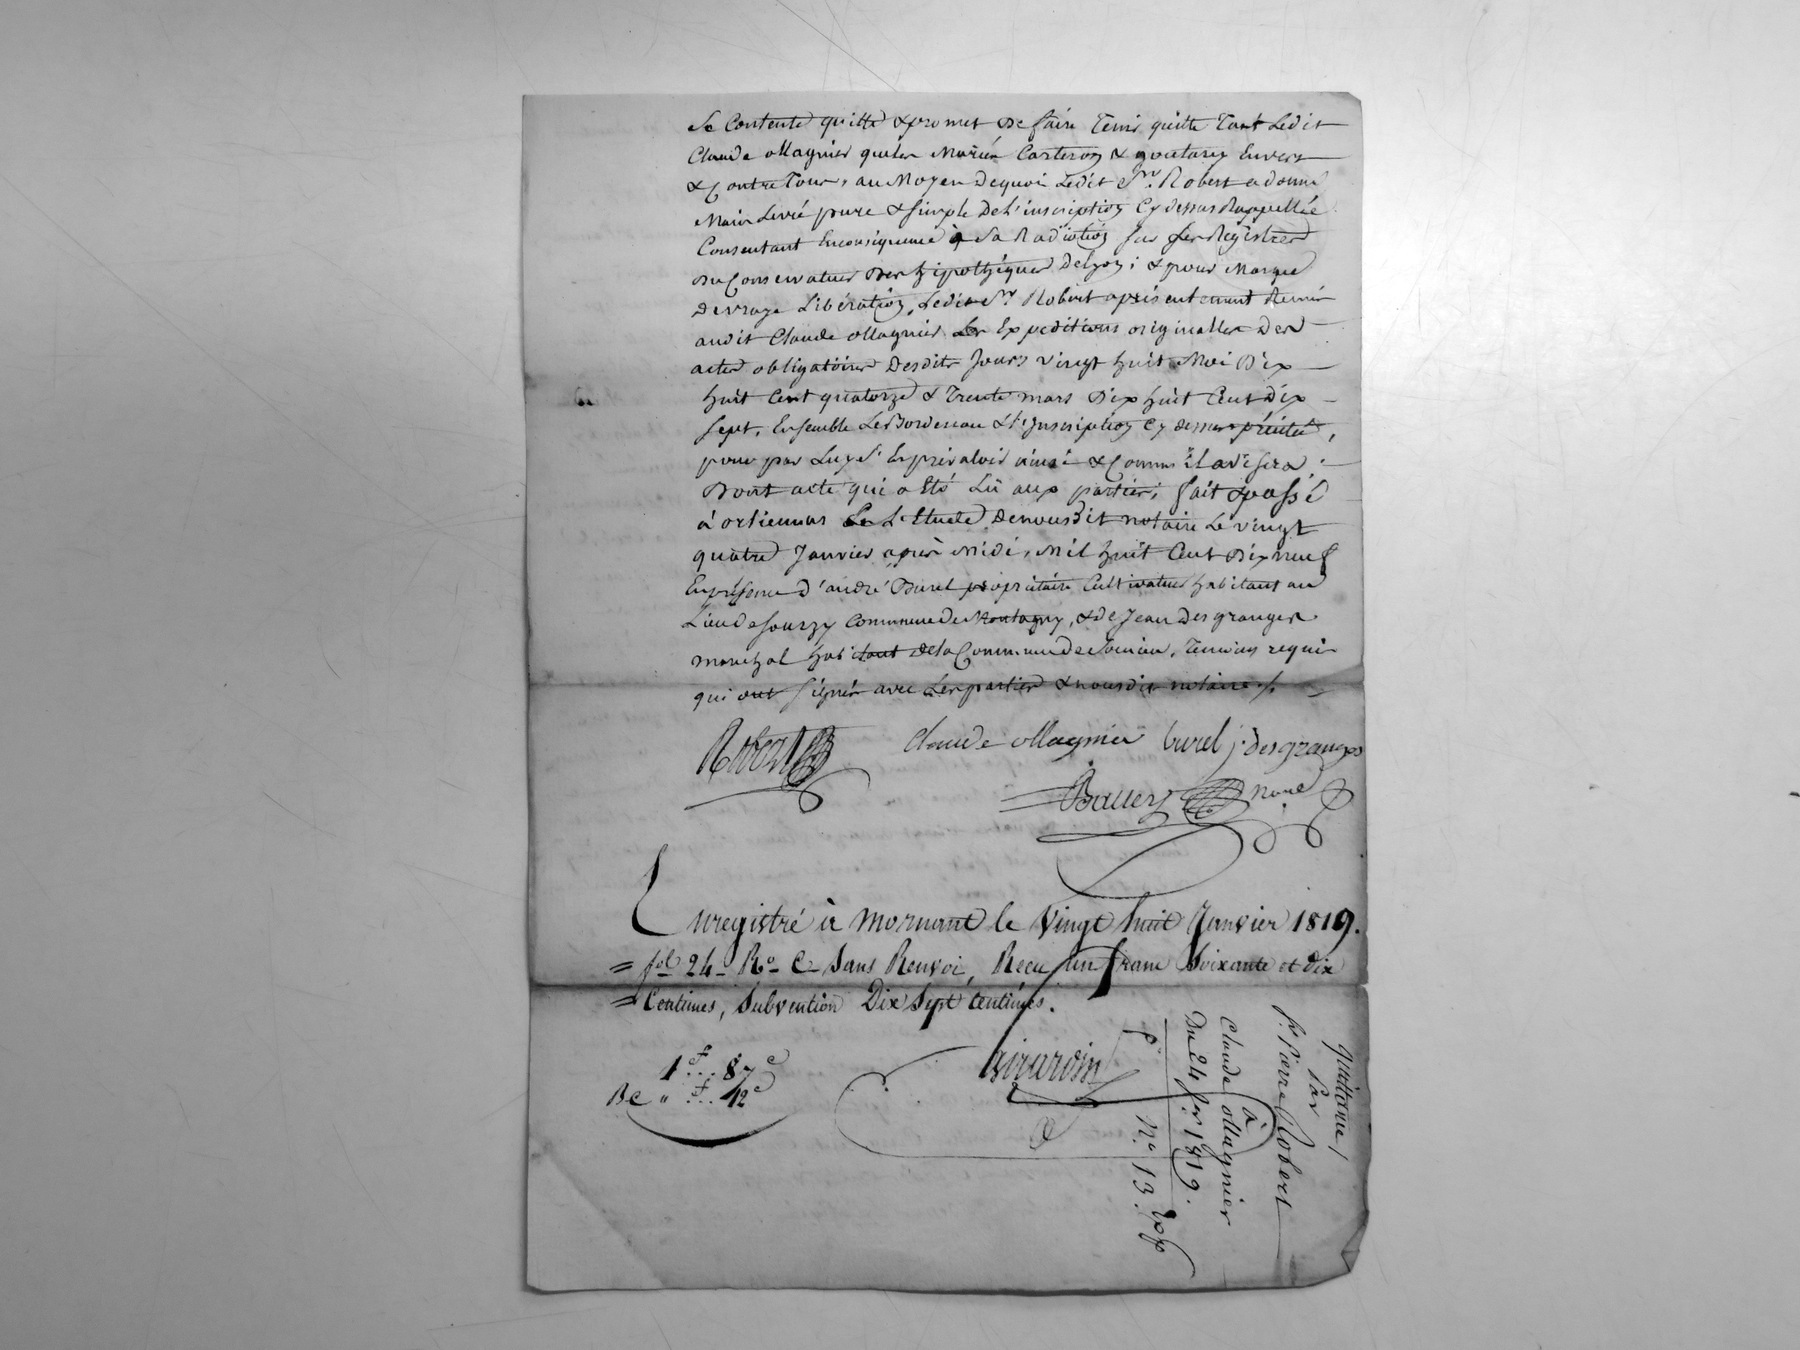 Se Contente quitte & promet de faire tenir quitte tant Ledit
Claude ollagnier que les Mariés Carteron & goutarey Envers
& Contre tous, au Moyen de quoi Ledit Sr. Robert a donné
Main Levée pure & simple de L'inscription Cy dessus Rappellée
Consentant En consequence à Sa Radiation sur Les Registres
du Conservateur des hipothéques de Lyon; & pour Marque
de vraye Libération, Ledit Sr Robert a présentement Remis
audit Claude ollagnier Les Expeditions originalles des
actes obligatoires desdits Jours vingt huit Mai Dix
huit Cent quatorze & trente mars Dix huit Cent dix
sept, Ensemble Le Bordereau & l'inscription Cy dessus
pour par Luy S'En prévaloir ainsi & Comme il avisera.
Dont acte qui a Eté Lu aux parties, fait & passé
à orlienas En L'Etude de nousdit notaire Le vingt
quatre Janvier après Midi, Mil huit Cent Dix neuf
En présence d'andré Burel propriétaire Cultivateur habitant au
Lieu de Sourzy Commune de Montagny, & de Jean des granges
marechal habitant de la Commune de Soucieu, temoins requis
qui ont signés avec Les parties & nousdit notaire ./.
Robert Claude ollagnier burel j. desgranges
nore
Enregistré à Mornant le vingt huit Janvier 1819.
= fol 24 Ro C Sans Renvoi, Recu un franc Soixante et dix
= Centimes, Subvention Dix Sept Centimes.
Girardin
1f... 87c
Be " f... 42c
quittance
Par
Sr. Pierre Robert
à
Claude ollagnier
Du 24 Jer. 1819.
No 13.